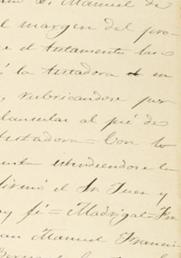 D. Manuel de
el margen del pro-
e el testamento las
é la testadora en
, rubricandose por
clausulas al pié de
testadora = Con lo
entendiendose la
firmó el Sr Juez y
oy fé = Madrigal = Fran
an Manuel Franci